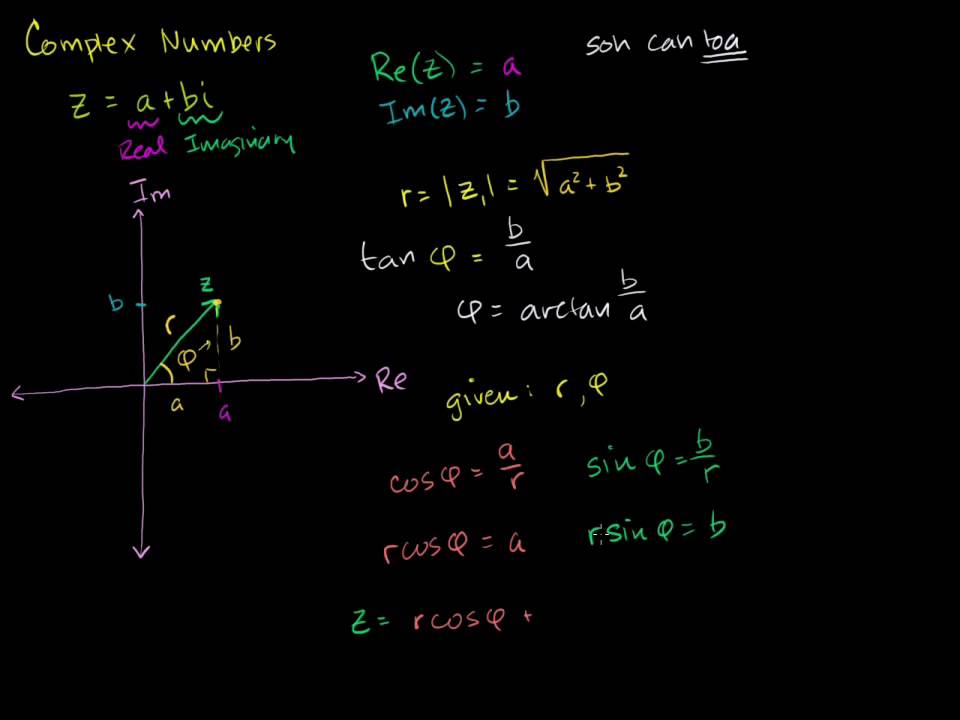 Complex Numbers
z = a + bi
Real Imaginary
Re(z) = a
Im(z) = b
soh cah toa
r = |z₁| = √a² + b²
tan φ = b/a
φ = arctan b/a
Im
z
b
r
φ
b
Re
a
a
given: r, φ
cosφ = a/r
sin φ = b/r
rcosφ = a
r sin φ = b
z = rcosφ +